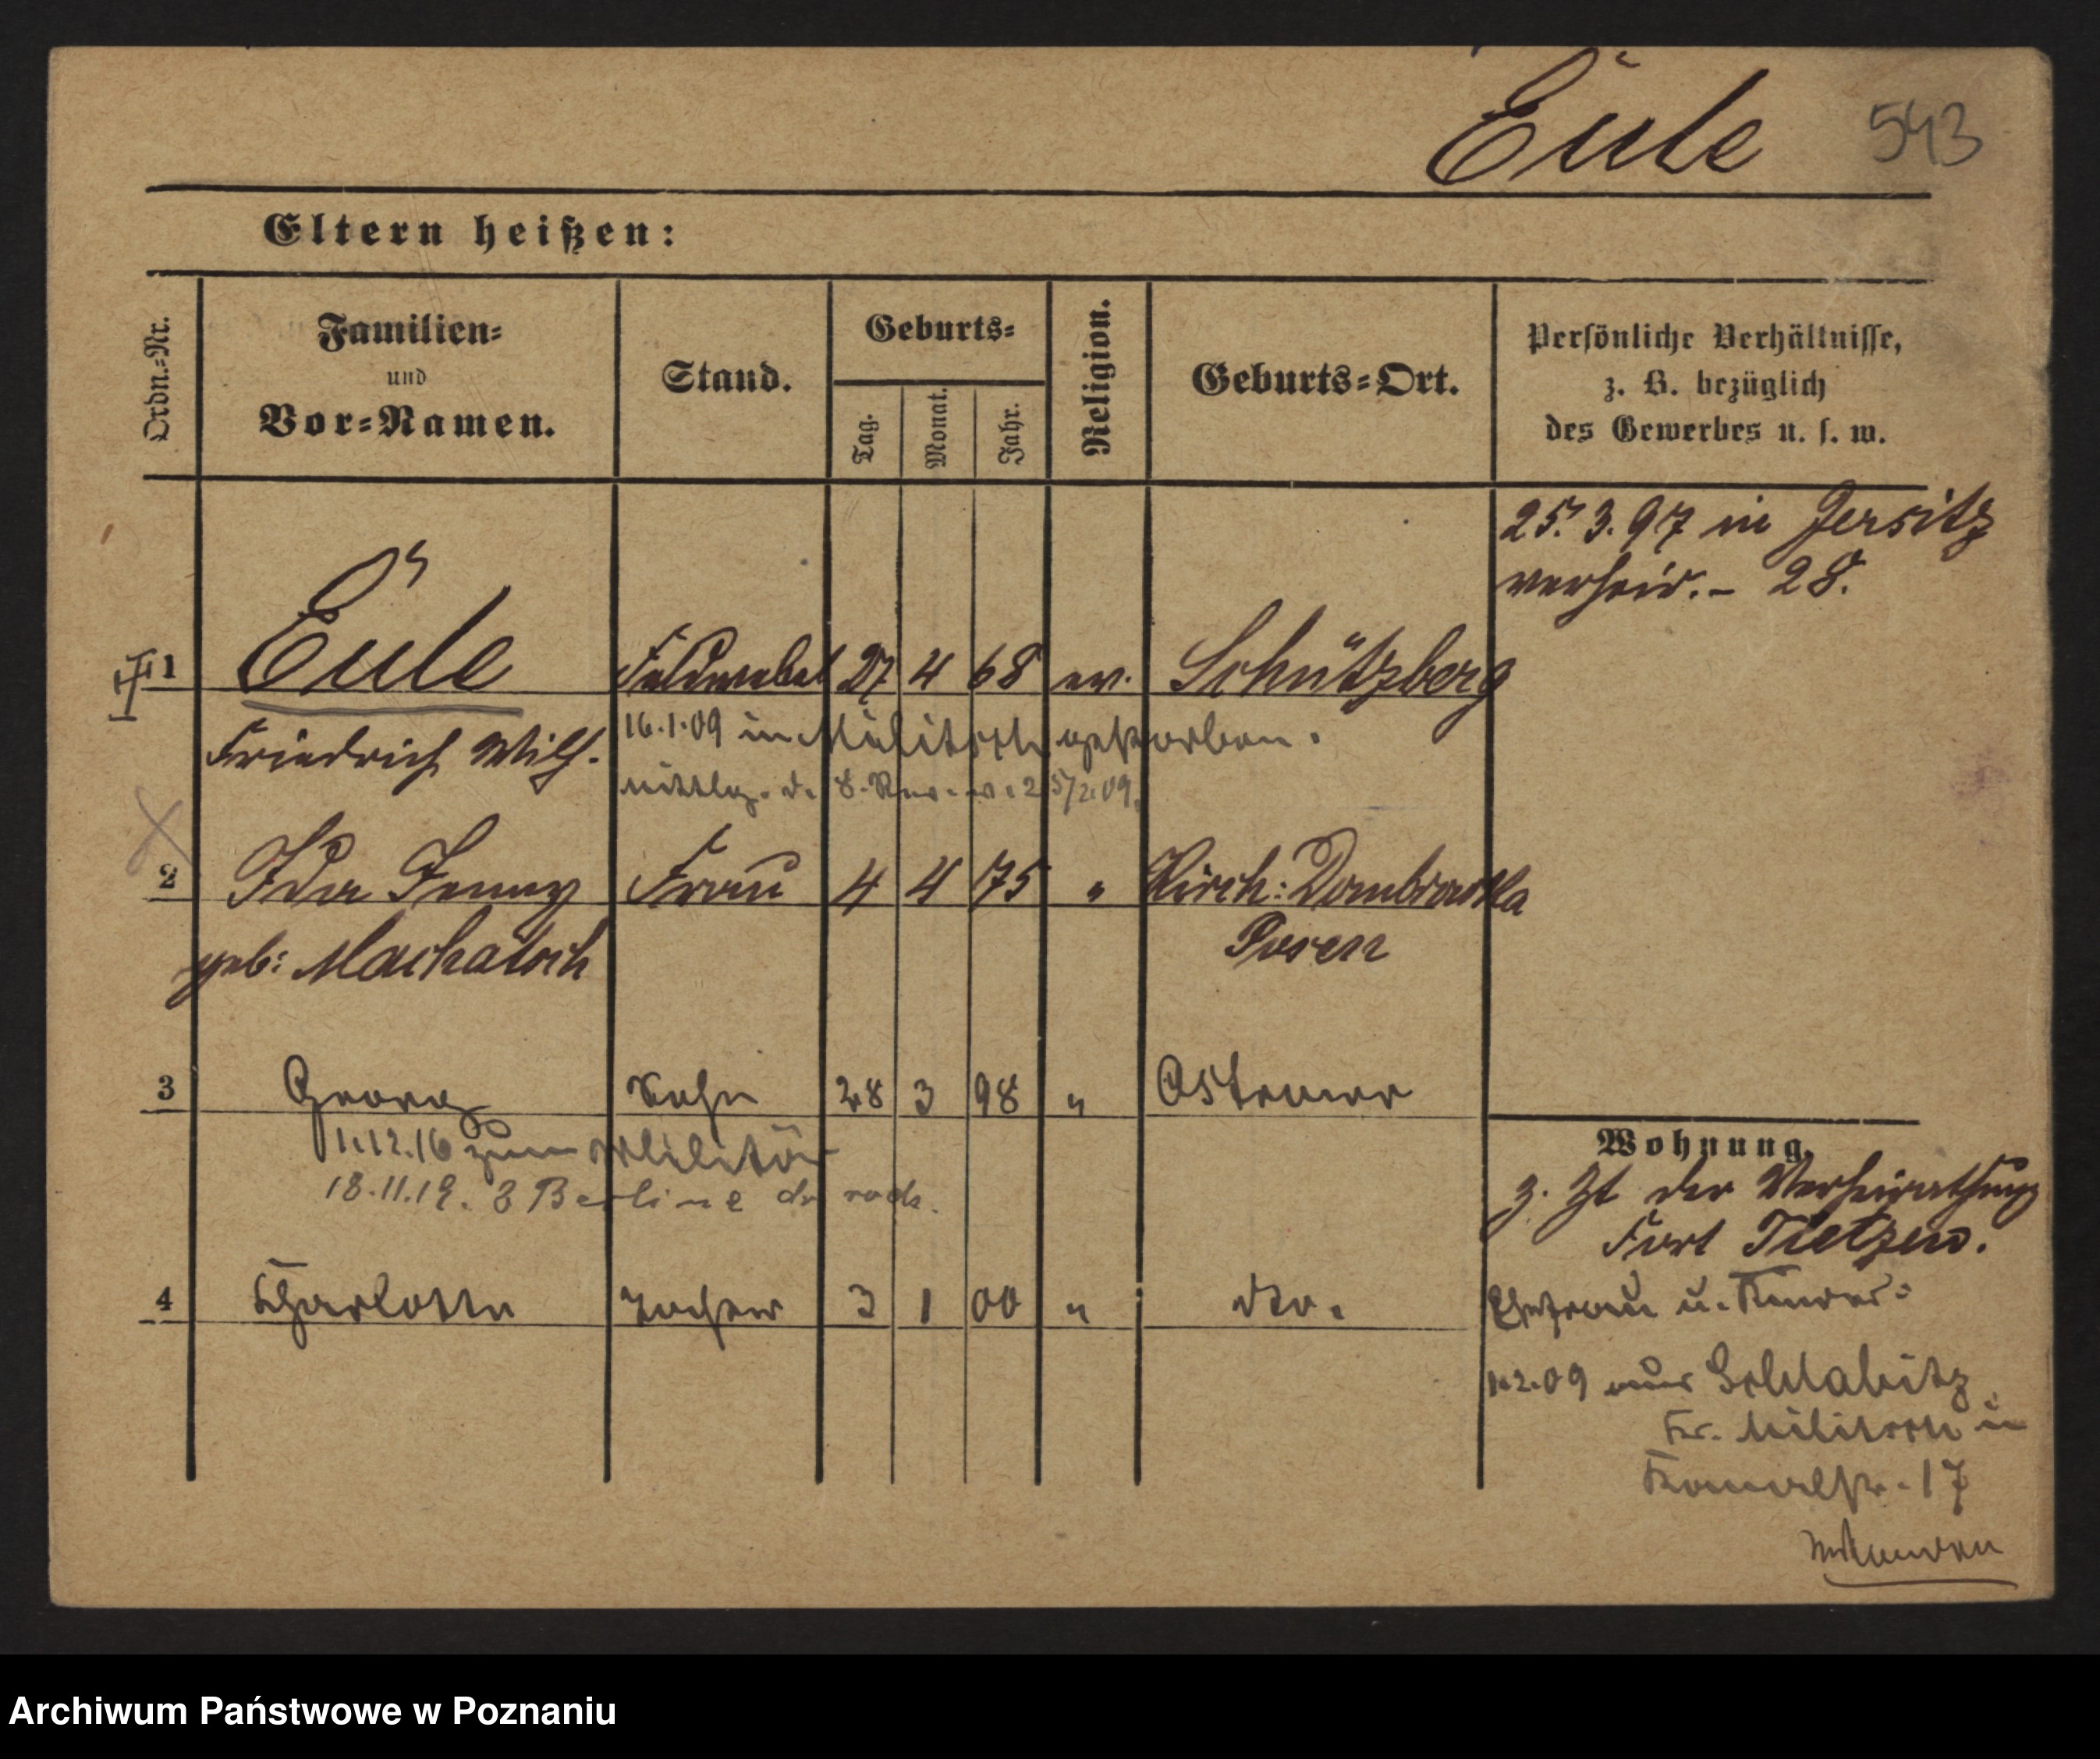 Eule 543
Eltern heißen:
Ordn.-Nr.
Familien-
und
Vor-Namen.
Stand.
Geburts-
Tag.
Monat.
Jahr.
Religion.
Geburts-Ort.
Persönliche Verhältnisse,
z. B. bezüglich
des Gewerbes u. s. w.
25. 3. 97 in Jersitz
verheir. - 28.
1 Eule Feldwebel 27 4 68 ev. Schützberg
Friedrich Wilh. 16.1.09 in Militsch gestorben.
mittlg. d. 8. Rev. v. 25/2.09.
2 Ida Jenny Frau 4 4 75 " Kirch: Dombrowka
geb: Machatsch Posen
3 Georg Sohn 28 3 98 " Ostrowo
1.12.16 zum Militär
18.11.19. z Berline
4 Charlotte Tochter 3 1 00 " dto.
Wohnung.
z. Zt der Verheirathung
Fort Tietzen.
Ehefrau u. Kinder:
1.2.09 aus
Kr. Militsch in
17